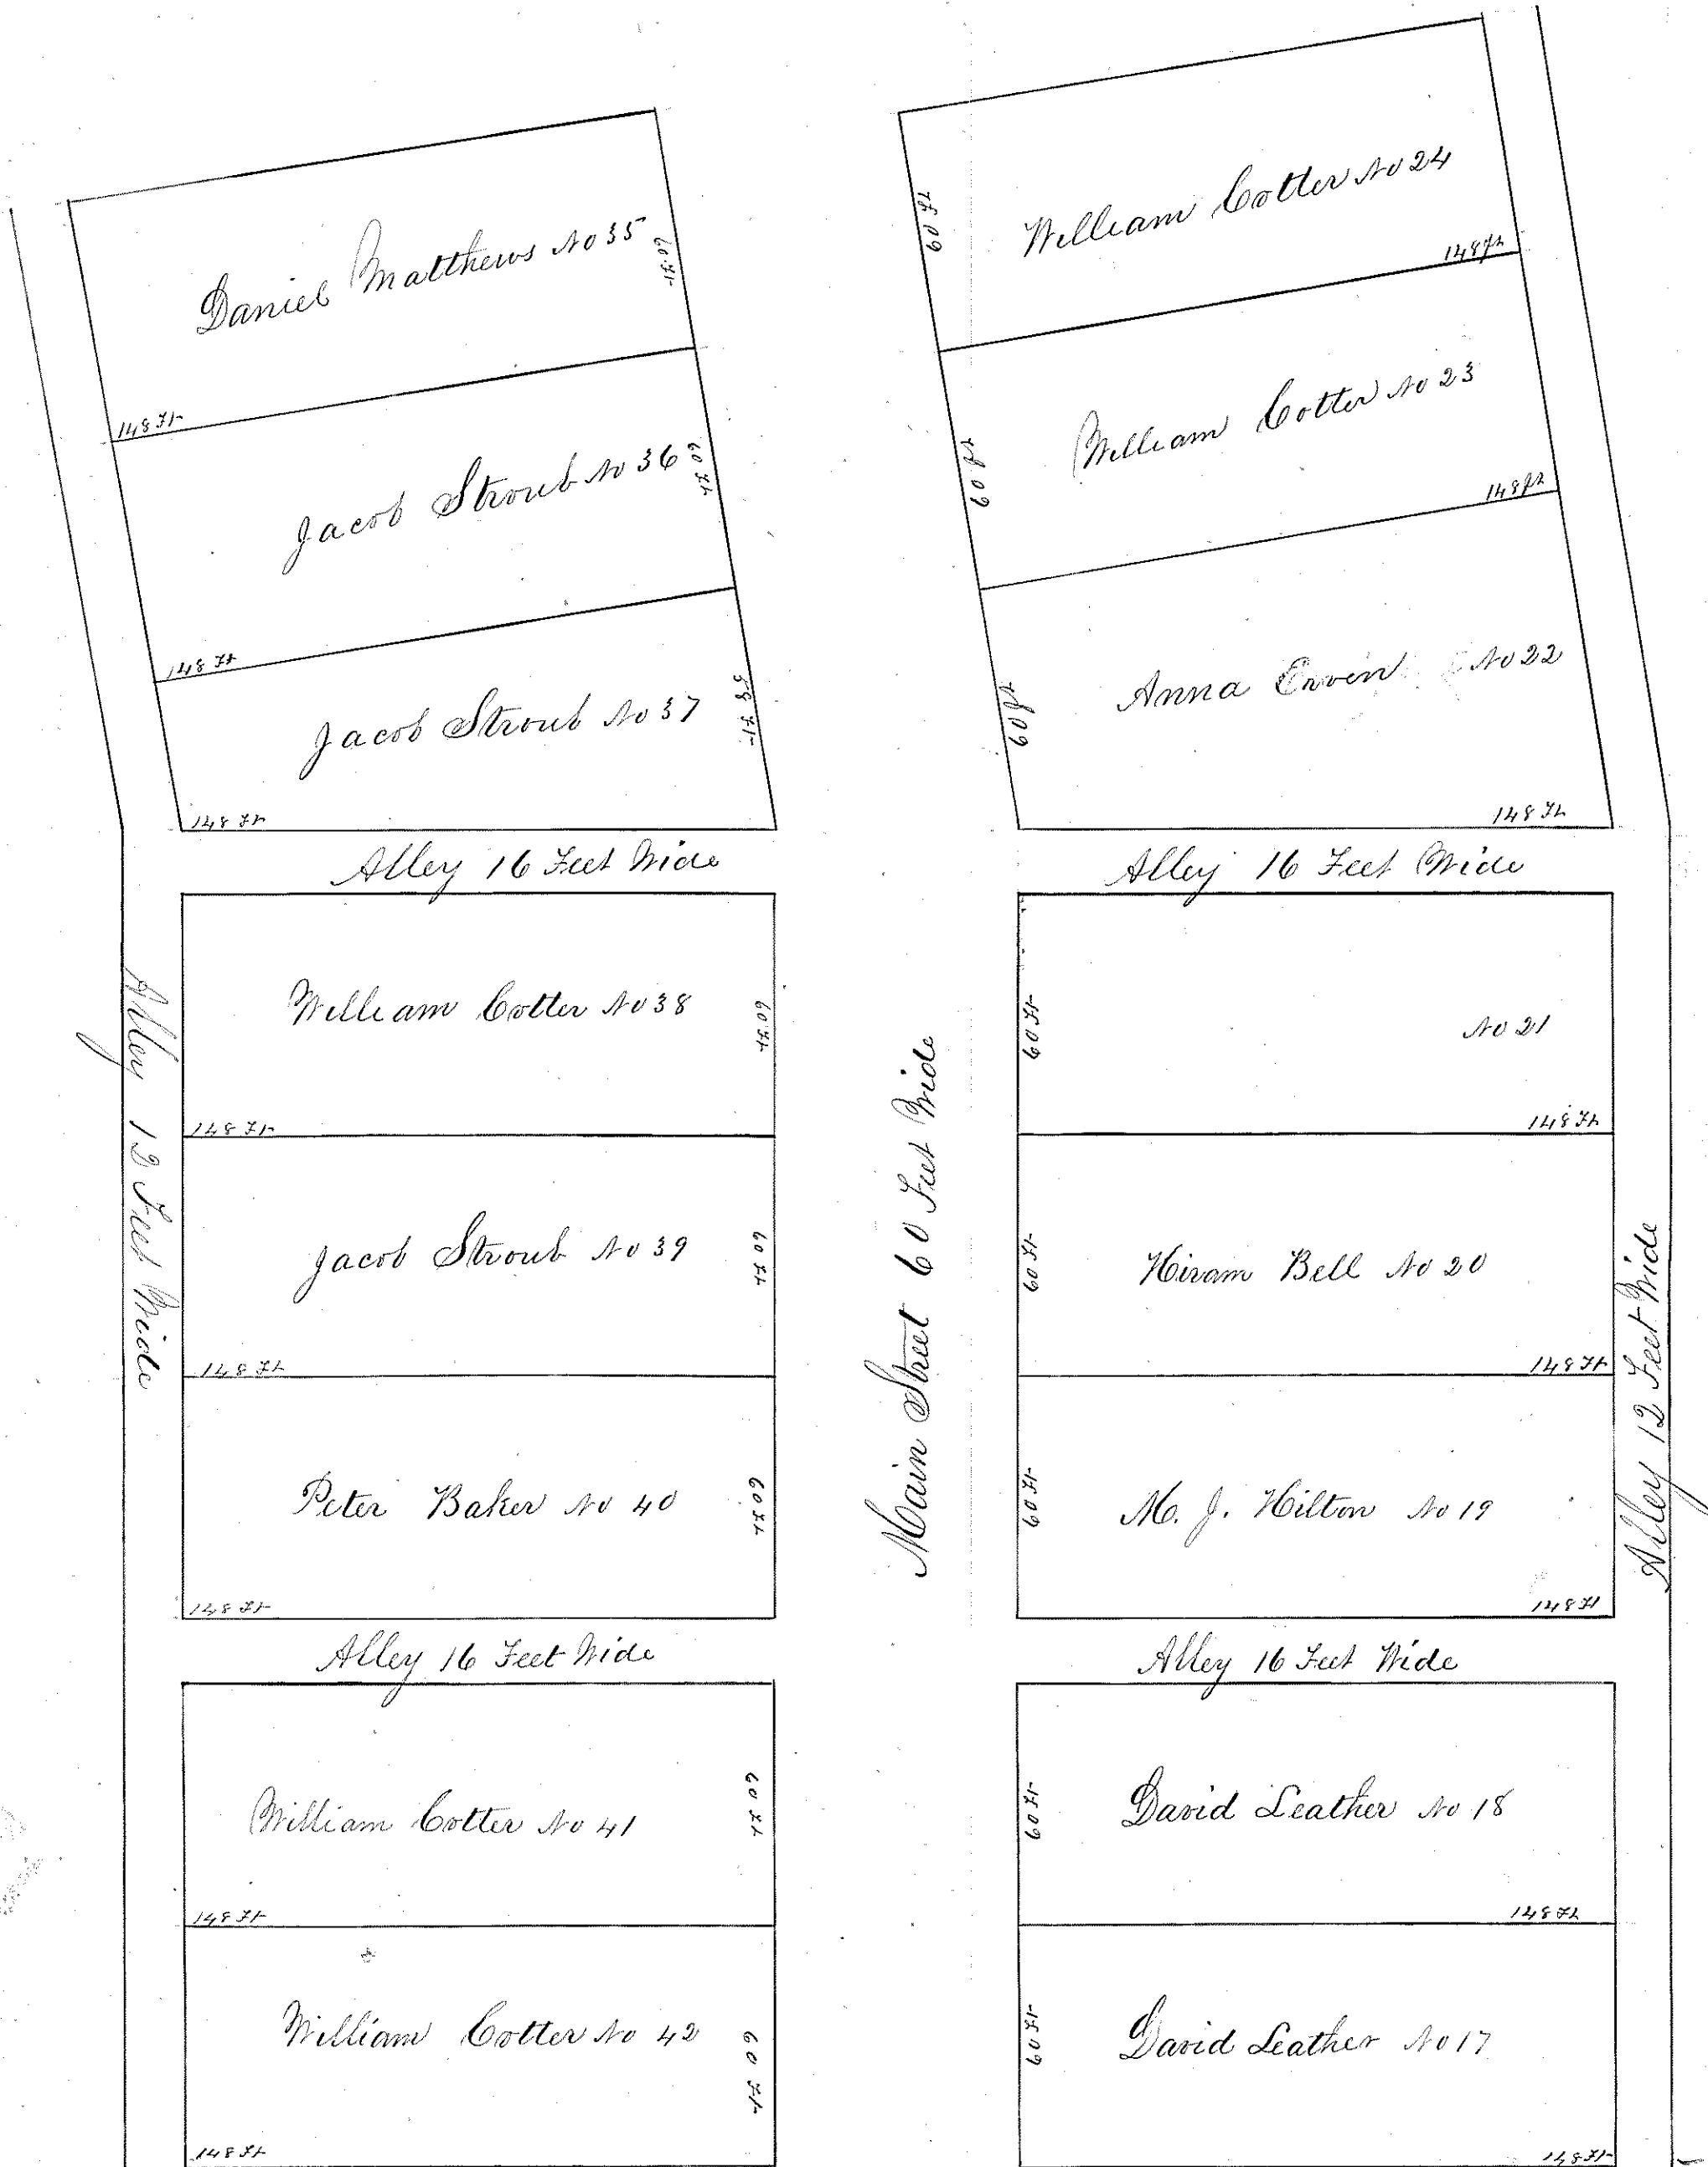 Daniel Matthews No 35
60 Ft
148 Ft
Jacob Stroub No 36
60 Ft
148 Ft
Jacob Stroub No 37
58 Ft
148 Ft
Alley 16 Feet Wide
William Cotter No 38
60 Ft
148 Ft
Jacob Stroub No 39
60 Ft
148 Ft
Peter Baker No 40
60 Ft
148 Ft
Alley 16 Feet Wide
William Cotter No 41
60 Ft
148 Ft
William Cotter No 42
60 Ft
148 Ft
Alley 12 Feet Wide
Main Street 60 Feet Wide
William Cotter No 24
60 Ft
148 ft
William Cotter No 23
60 ft
148 ft
Anna Ervin No 22
60 ft
148 Ft
Alley 16 Feet Wide
No 21
60 Ft
148 Ft
Hiram Bell No 20
60 Ft
148 Ft
M. J. Hilton No 19
60 Ft
148 Ft
Alley 16 Feet Wide
David Leather No 18
60 Ft
148 Ft
David Leather No 17
60 Ft
148 Ft
Alley 12 Feet Wide